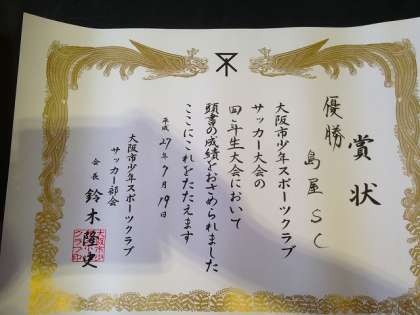 賞状
優勝
島屋SC
大阪市少年スポーツクラブ
サッカー大会の
四年生大会において
頭書の成績をおさめられました
ここにこれをたたえます
平成27年7月19日
大阪市少年スポーツクラブ
サッカー部会
会長 鈴木隆史